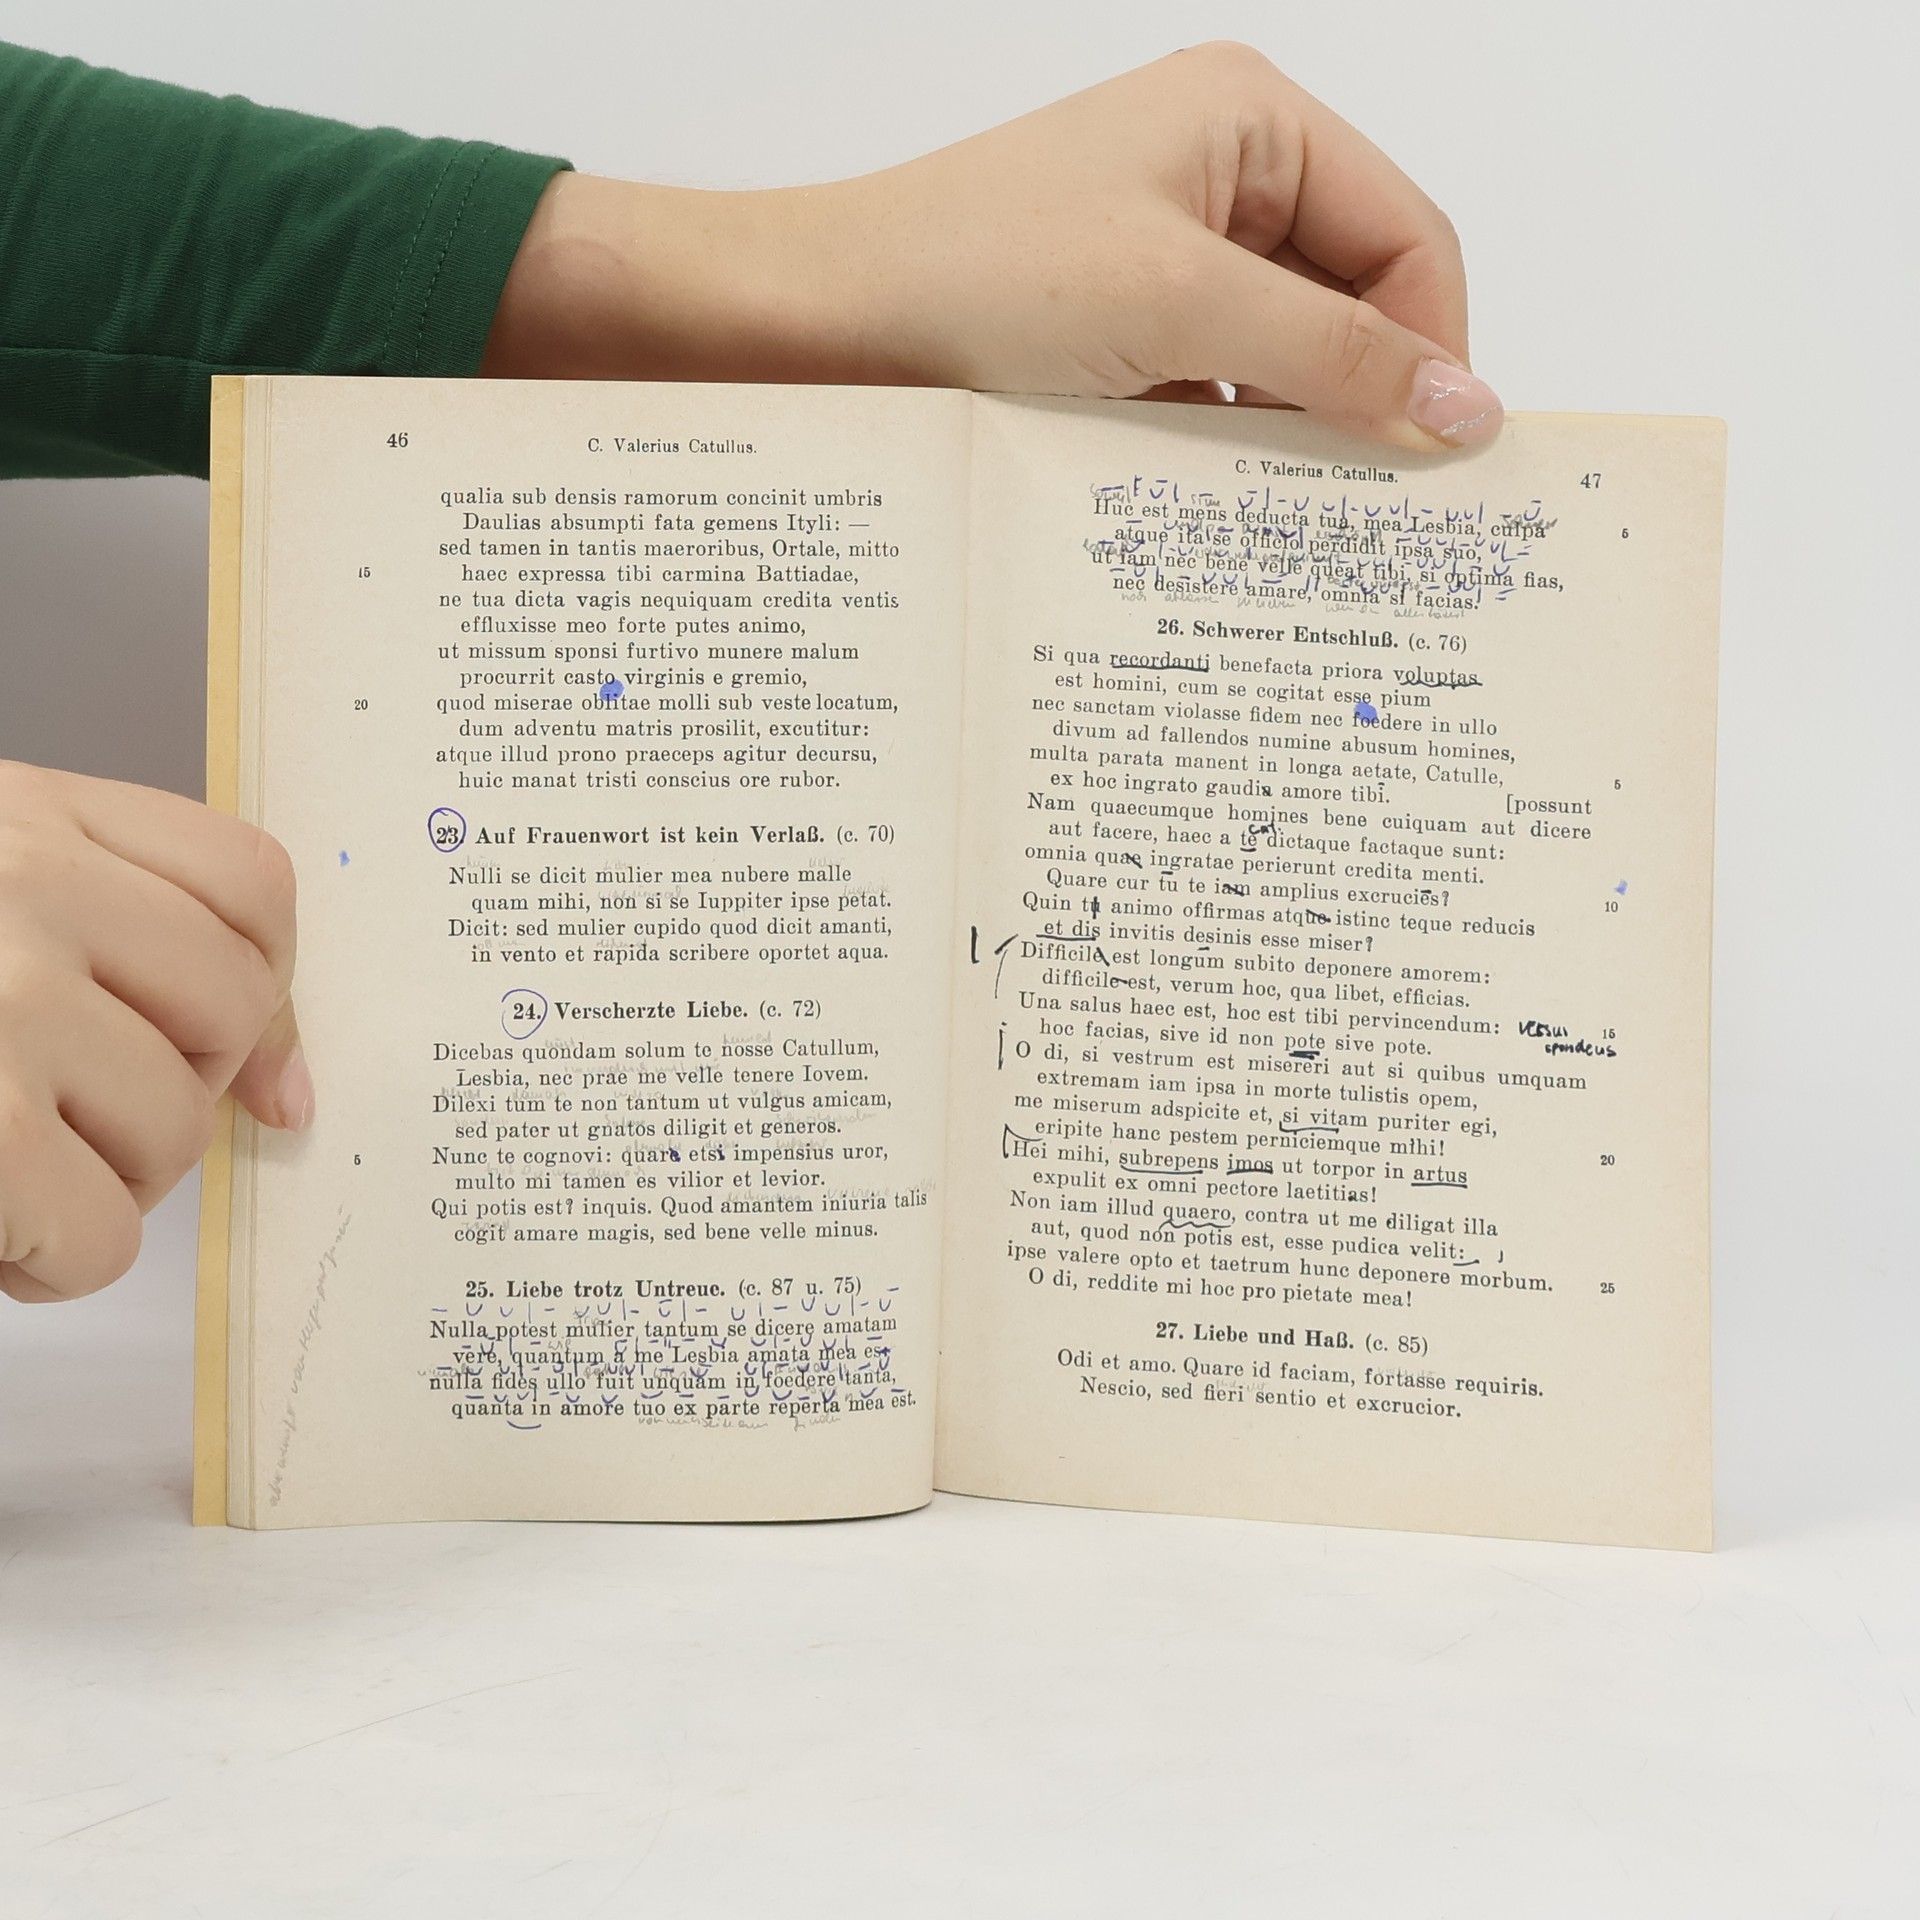 46
C. Valerius Catullus.
qualia sub densis ramorum concinit umbris
Daulias absumpti fata gemens Ityli: —
sed tamen in tantis maeroribus, Ortale, mitto
15 haec expressa tibi carmina Battiadae,
ne tua dicta vagis nequiquam credita ventis
effluxisse meo forte putes animo,
ut missum sponsi furtivo munere malum
procurrit casto virginis e gremio,
20 quod miserae oblitae molli sub veste locatum,
dum adventu matris prosilit, excutitur:
atque illud prono praeceps agitur decursu,
huic manat tristi conscius ore rubor.
23. Auf Frauenwort ist kein Verlaß. (c. 70)
Nulli se dicit mulier mea nubere malle
quam mihi, non si se Iuppiter ipse petat.
Dicit: sed mulier cupido quod dicit amanti,
in vento et rapida scribere oportet aqua.
24. Verscherzte Liebe. (c. 72)
Dicebas quondam solum te nosse Catullum,
Lesbia, nec prae me velle tenere Iovem.
Dilexi tum te non tantum ut vulgus amicam,
sed pater ut gnatos diligit et generos.
5 Nunc te cognovi: quare etsi impensius uror,
multo mi tamen es vilior et levior.
Qui potis est? inquis. Quod amantem iniuria talis
cogit amare magis, sed bene velle minus.
25. Liebe trotz Untreue. (c. 87 u. 75)
Nulla potest mulier tantum se dicere amatam
vere, quantum a me Lesbia amata mea est
nulla fides ullo fuit unquam in foedere tanta,
quanta in amore tuo ex parte reperta mea est.
C. Valerius Catullus.
47
Huc est mens deducta tua, mea Lesbia, culpa 5
atque ita se officio perdidit ipsa suo,
ut iam nec bene velle queat tibi, si optima fias,
nec desistere amare, omnia si facias.
26. Schwerer Entschluß. (c. 76)
Si qua recordanti benefacta priora voluptas
est homini, cum se cogitat esse pium
nec sanctam violasse fidem nec foedere in ullo
divum ad fallendos numine abusum homines,
multa parata manent in longa aetate, Catulle, 5
ex hoc ingrato gaudia amore tibi. [possunt
Nam quaecumque homines bene cuiquam aut dicere
aut facere, haec a te dictaque factaque sunt:
omnia quae ingratae perierunt credita menti.
Quare cur tu te iam amplius excrucies? 10
Quin tu animo offirmas atque istinc teque reducis
et dis invitis desinis esse miser?
Difficile est longum subito deponere amorem:
difficile est, verum hoc, qua libet, efficias.
Una salus haec est, hoc est tibi pervincendum: versus 15
spondeus
hoc facias, sive id non pote sive pote.
O di, si vestrum est misereri aut si quibus umquam
extremam iam ipsa in morte tulistis opem,
me miserum adspicite et, si vitam puriter egi,
eripite hanc pestem perniciemque mihi! 20
Hei mihi, subrepens imos ut torpor in artus
expulit ex omni pectore laetitias!
Non iam illud quaero, contra ut me diligat illa
aut, quod non potis est, esse pudica velit:
ipse valere opto et taetrum hunc deponere morbum. 25
O di, reddite mi hoc pro pietate mea!
27. Liebe und Haß. (c. 85)
Odi et amo. Quare id faciam, fortasse requiris.
Nescio, sed fieri sentio et excrucior.